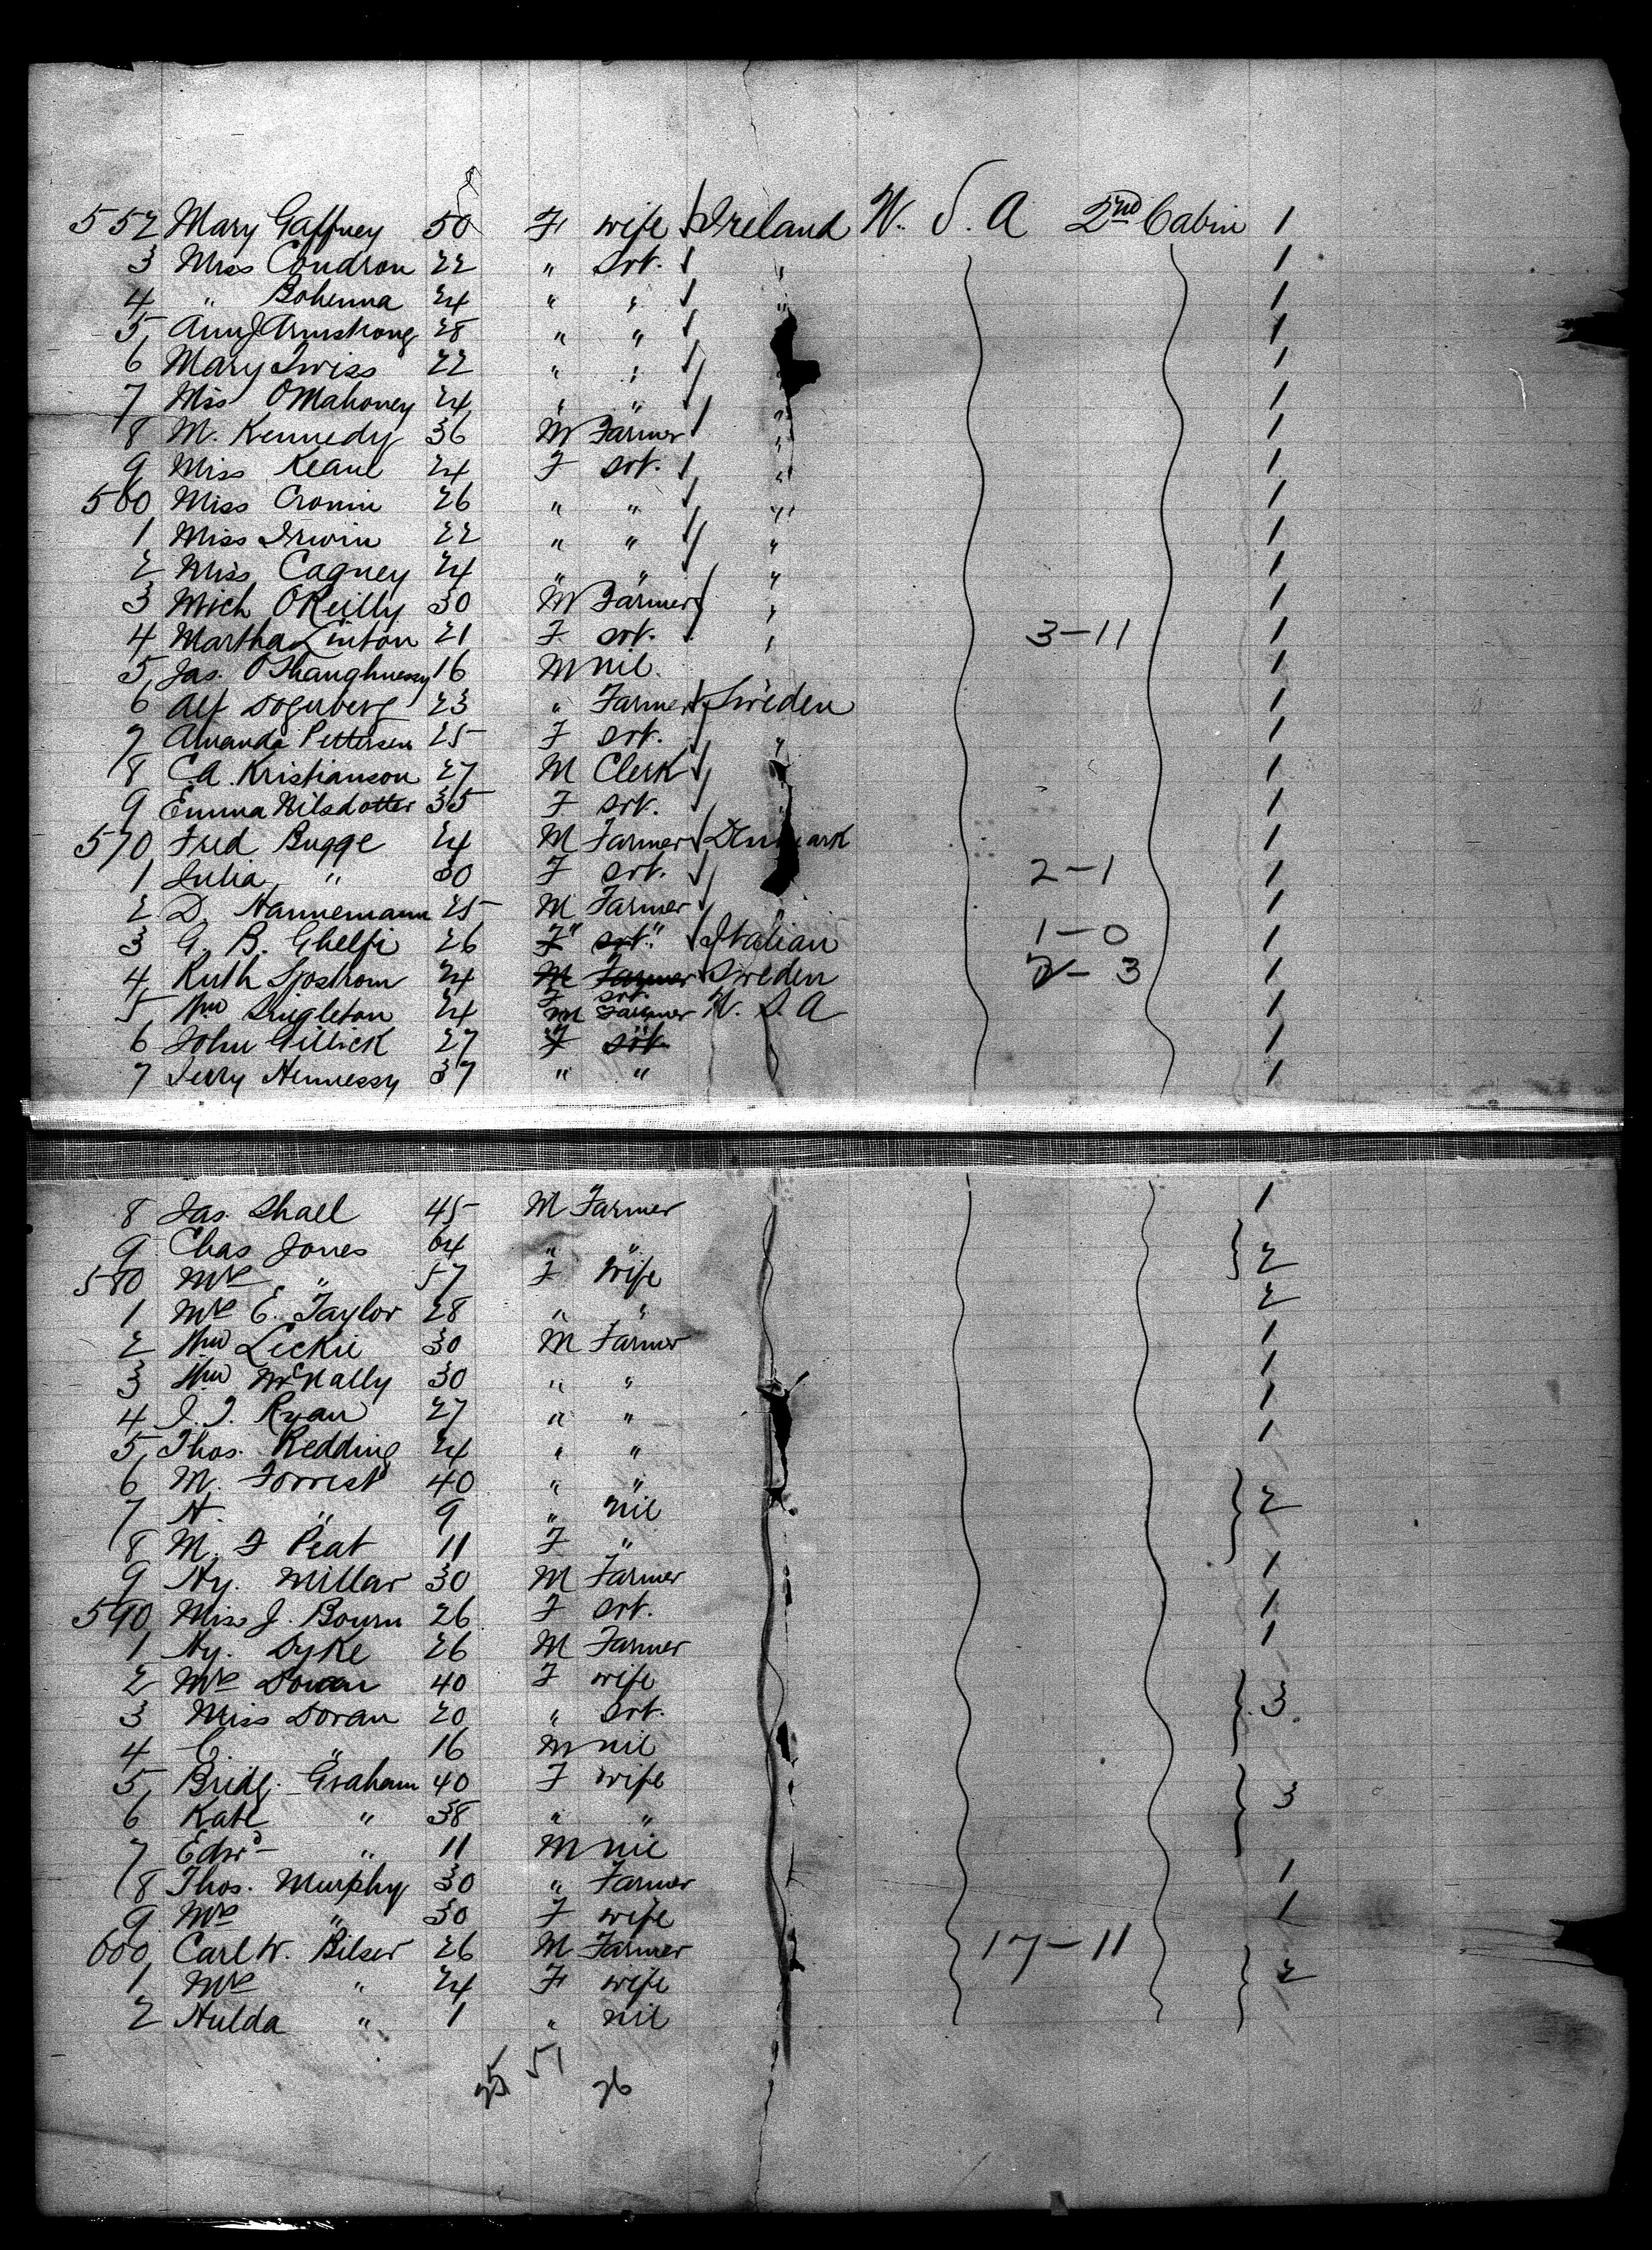 552 Mary Gaffney 50 F wife Ireland U. S. A 2nd Cabin 1
3 Miss Condron 22 " Srt. " 1
4 " Bohenna 24 " " " 1
5 Ann J Armstrong 28 " " 1
6 Mary Twiss 22 " " " 1
7 Miss O'Mahoney 24 " " " 1
8 M. Kennedy 36 M Farmer " 1
9 Miss Keane 24 F srt. " 1
560 Miss Cronin 26 " " " 1
1 Miss Irwin 22 " " " 1
2 Miss Cagney 24 " " " 1
3 Mich O'Reilly 30 M Farmer " 1
4 Martha Linton 21 F srt. " 3-11 1
5 Jas. O'Shaughnessy 16 M nil 1
6 Alf 23 " Farmer Sweden 1
7 Amanda Pettersen 25 F srt. " 1
8 C.A. Kristianson 27 M Clerk " 1
9 Emma Nilsdotter 35 F srt. " 1
570 Fred Bugge 24 M Farmer Denmark 1
1 Julia " 30 F srt. 2-1 1
2 D. Hannemann 25 M Farmer " 1
3 G. B. Ghelfi 26 " " Italian 1-0 1
4 Ruth Sjostrom 24 F srt. Sweden 2-3 1
5 Wm Singleton 24 M Farmer U. S. A 1
6 John Gillick 27 " " 1
7 Jerry Hennessy 37 " " 1
8 Jas. Shael 45 M Farmer 1
9 Chas Jones 64 " " } 2
580 Mrs " 57 F Wife
1 Mrs E. Taylor 28 " " 2
2 Wm Leckie 30 M Farmer 1
3 Wm McNally 30 " " 1
4 J. J. Ryan 27 " " 1
5 Thos. Redding 24 " " 1
6 M. Forrest 40 " "
7 H. " 9 " nil } 2
8 M. F Peat 11 F "
9 Hy. Millar 30 M Farmer 1
590 Miss J. Bourn 26 F srt. 1
1 Hy. Dyke 26 M Farmer 1
2 Mrs Doran 40 F wife
3 Miss Doran 20 " srt. } 3
4 C. " 16 M nil
5 Bridg. Graham 40 F wife
6 Kate " 38 " " } 3
7 Edwd " 11 M nil
8 Thos. Murphy 30 " Farmer 1
9 Mrs " 30 F wife 1
600 Carl W. Belser 26 M Farmer 17-11
1 Mrs " 24 F wife } 2
2 Hulda " 1 " nil
25 51 26